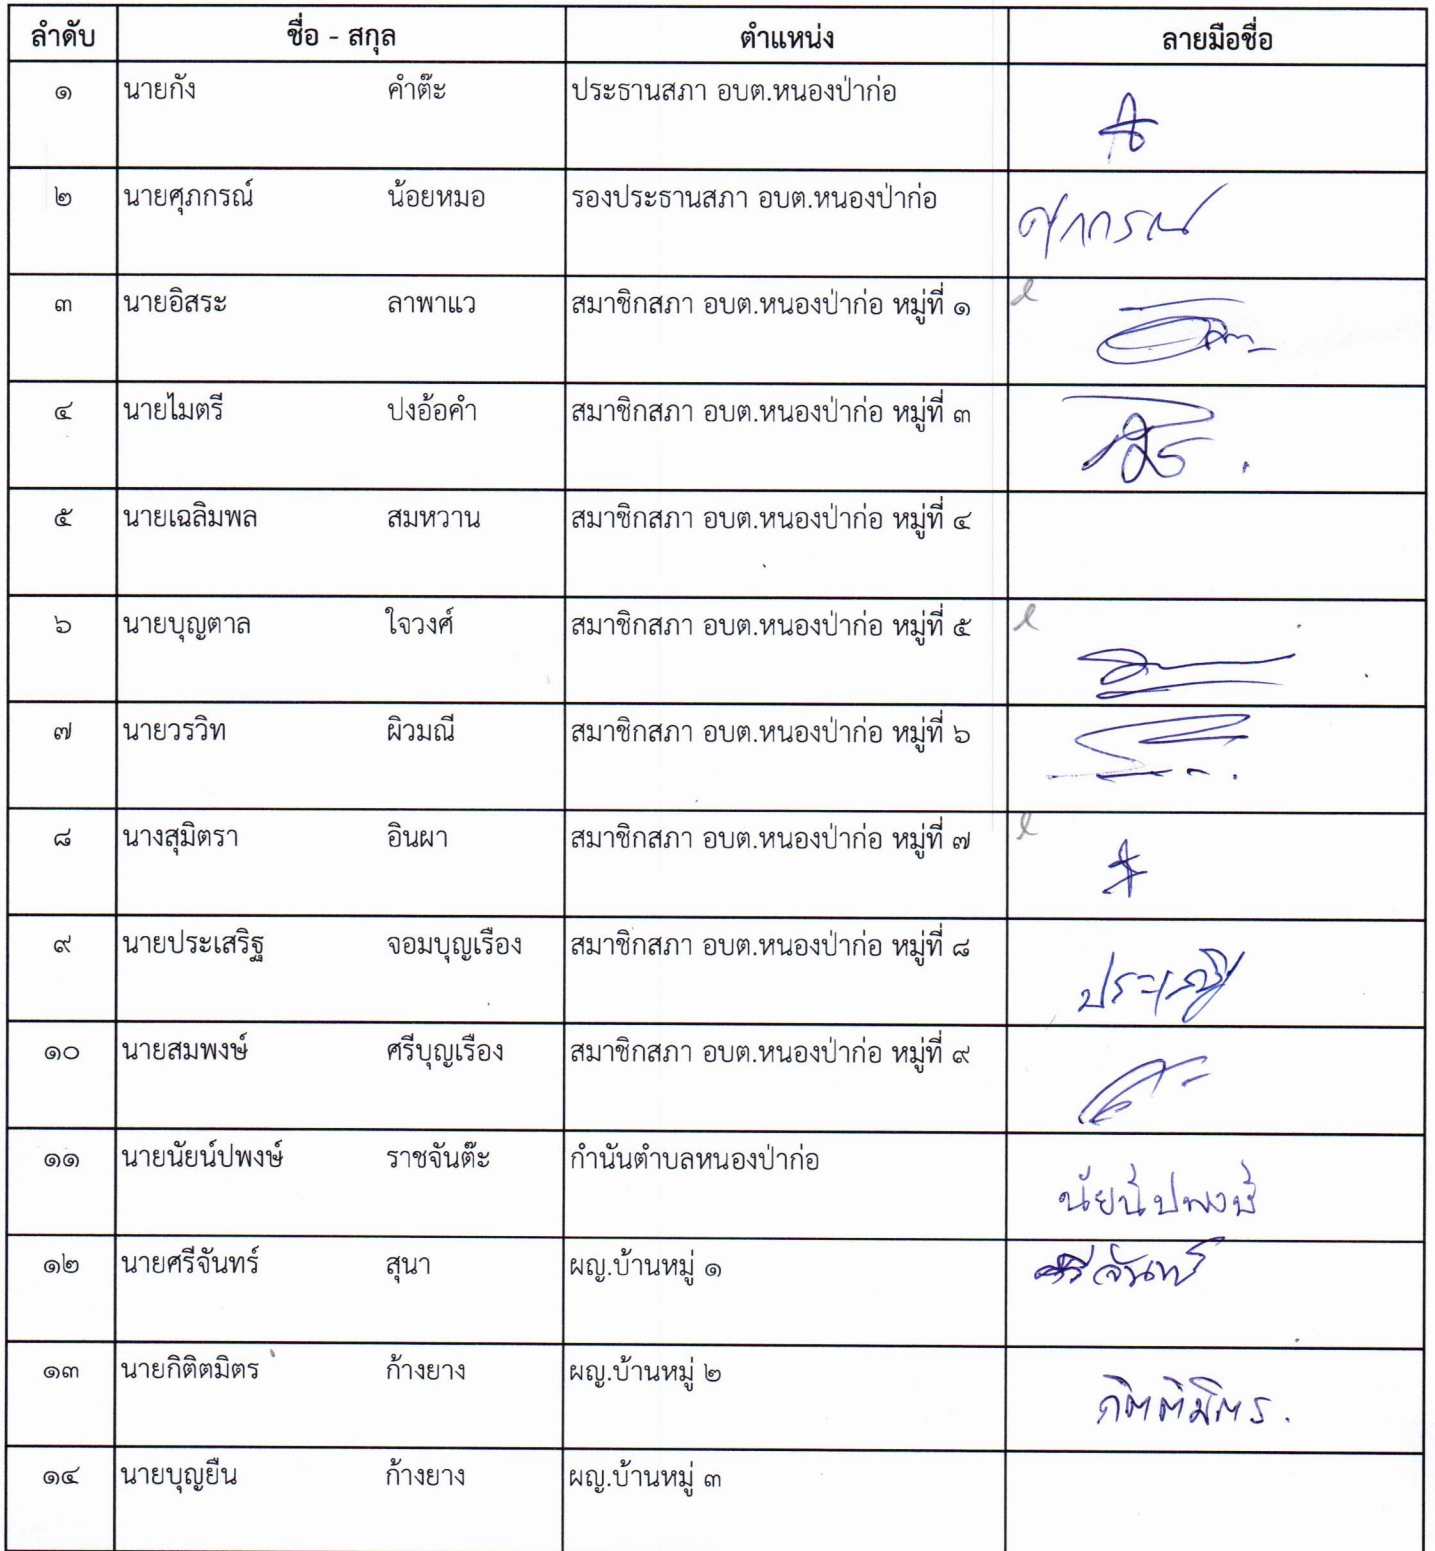 ลำดับ ชื่อ - สกุล ตำแหน่ง ลายมือชื่อ
๑ นายกัง คำต๊ะ ประธานสภา อบต.หนองป่าก่อ
๒ นายศุภกรณ์ น้อยหมอ รองประธานสภา อบต.หนองป่าก่อ ศุภกรณ์
๓ นายอิสระ ลาพาแว สมาชิกสภา อบต.หนองป่าก่อ หมู่ที่ ๑
๔ นายไมตรี ปงอ้อคำ สมาชิกสภา อบต.หนองป่าก่อ หมู่ที่ ๓
๕ นายเฉลิมพล สมหวาน สมาชิกสภา อบต.หนองป่าก่อ หมู่ที่ ๔
๖ นายบุญตาล ใจวงศ์ สมาชิกสภา อบต.หนองป่าก่อ หมู่ที่ ๕
๗ นายวรวิท ผิวมณี สมาชิกสภา อบต.หนองป่าก่อ หมู่ที่ ๖
๘ นางสุมิตรา อินผา สมาชิกสภา อบต.หนองป่าก่อ หมู่ที่ ๗
๙ นายประเสริฐ จอมบุญเรือง สมาชิกสภา อบต.หนองป่าก่อ หมู่ที่ ๘ ประเสริฐ
๑๐ นายสมพงษ์ ศรีบุญเรือง สมาชิกสภา อบต.หนองป่าก่อ หมู่ที่ ๙
๑๑ นายนัยน์ปพงษ์ ราชจันต๊ะ กำนันตำบลหนองป่าก่อ นัยน์ปพงษ์
๑๒ นายศรีจันทร์ สุนา ผญ.บ้านหมู่ ๑ ศรีจันทร์
๑๓ นายกิติตมิตร ก้างยาง ผญ.บ้านหมู่ ๒ กิตติมิตร.
๑๔ นายบุญยืน ก้างยาง ผญ.บ้านหมู่ ๓